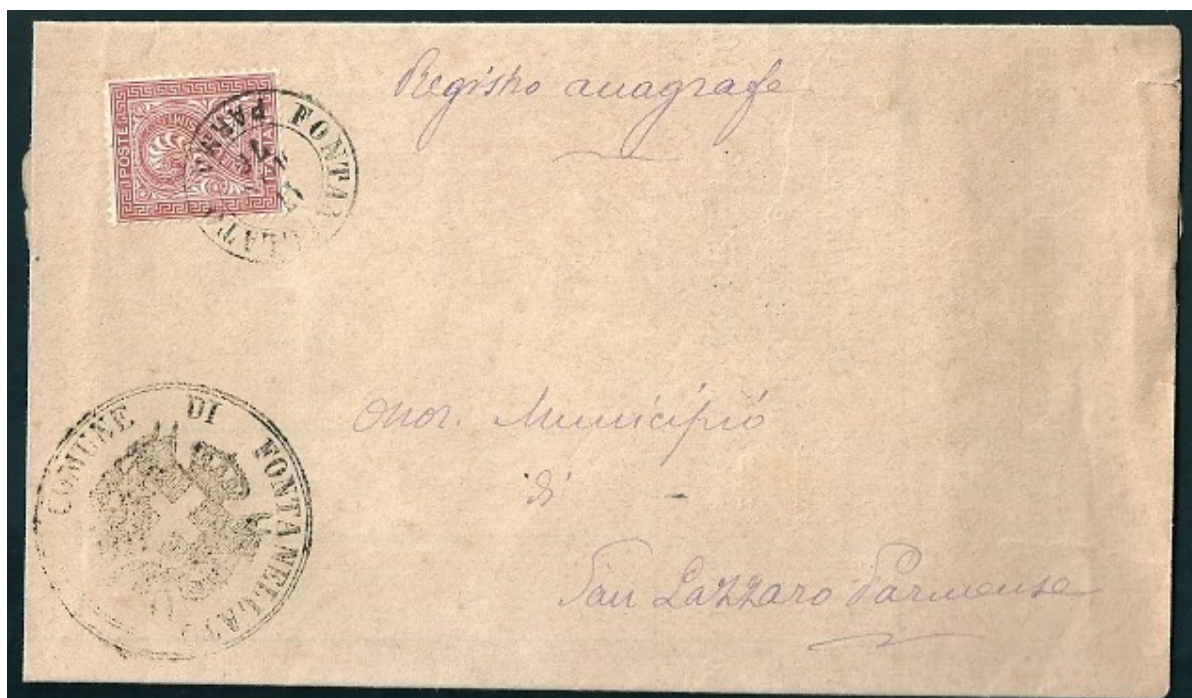 Registro anagrafe
POSTE ITALIANE
FONTANELLATO
PARMA
COMUNE DI FONTANELLATO
Onor. Municipio
di
San Lazzaro Parmense